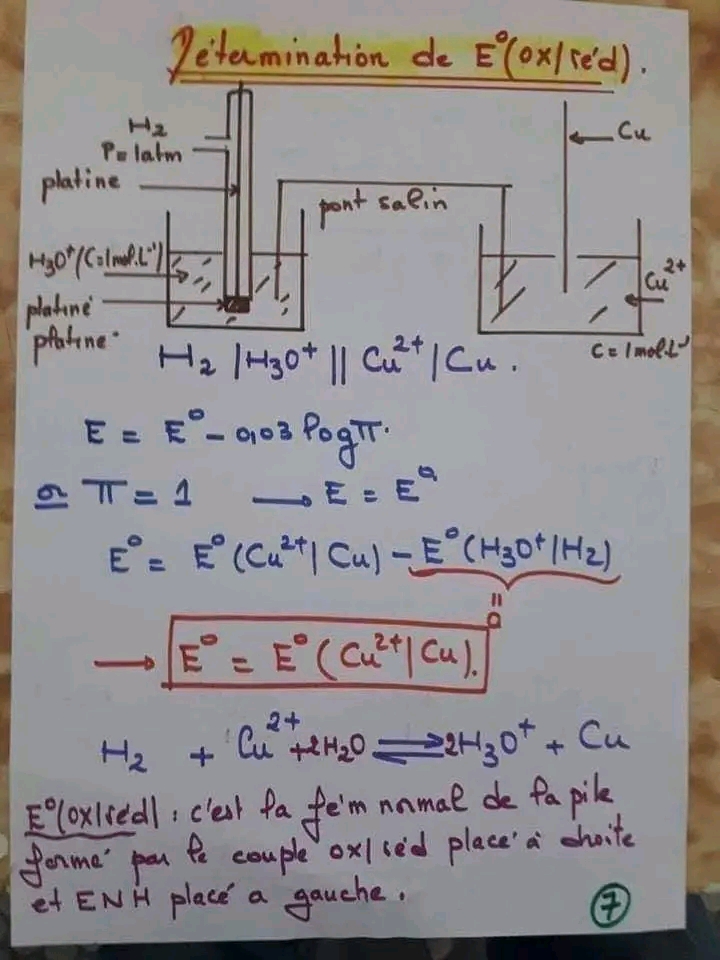 Détermination de E°(ox/réd).
H2
P=1atm
platine
H3O+(C=1mol.L-1)
platine
platiné
pont salin
Cu
Cu2+
C=1mol.L-1
H2 | H3O+ || Cu2+ | Cu.
E = E° - 0,03 logπ.
or π = 1 → E = E°
E° = E°(Cu2+/Cu) - E°(H3O+/H2)
= 0
→ E° = E°(Cu2+/Cu).
H2 + Cu2+ + 2H2O ⇌ 2H3O+ + Cu
E°(ox/réd) : c'est la fém normal de la pile
formé par le couple ox/réd placé à droite
et ENH placé a gauche.
7